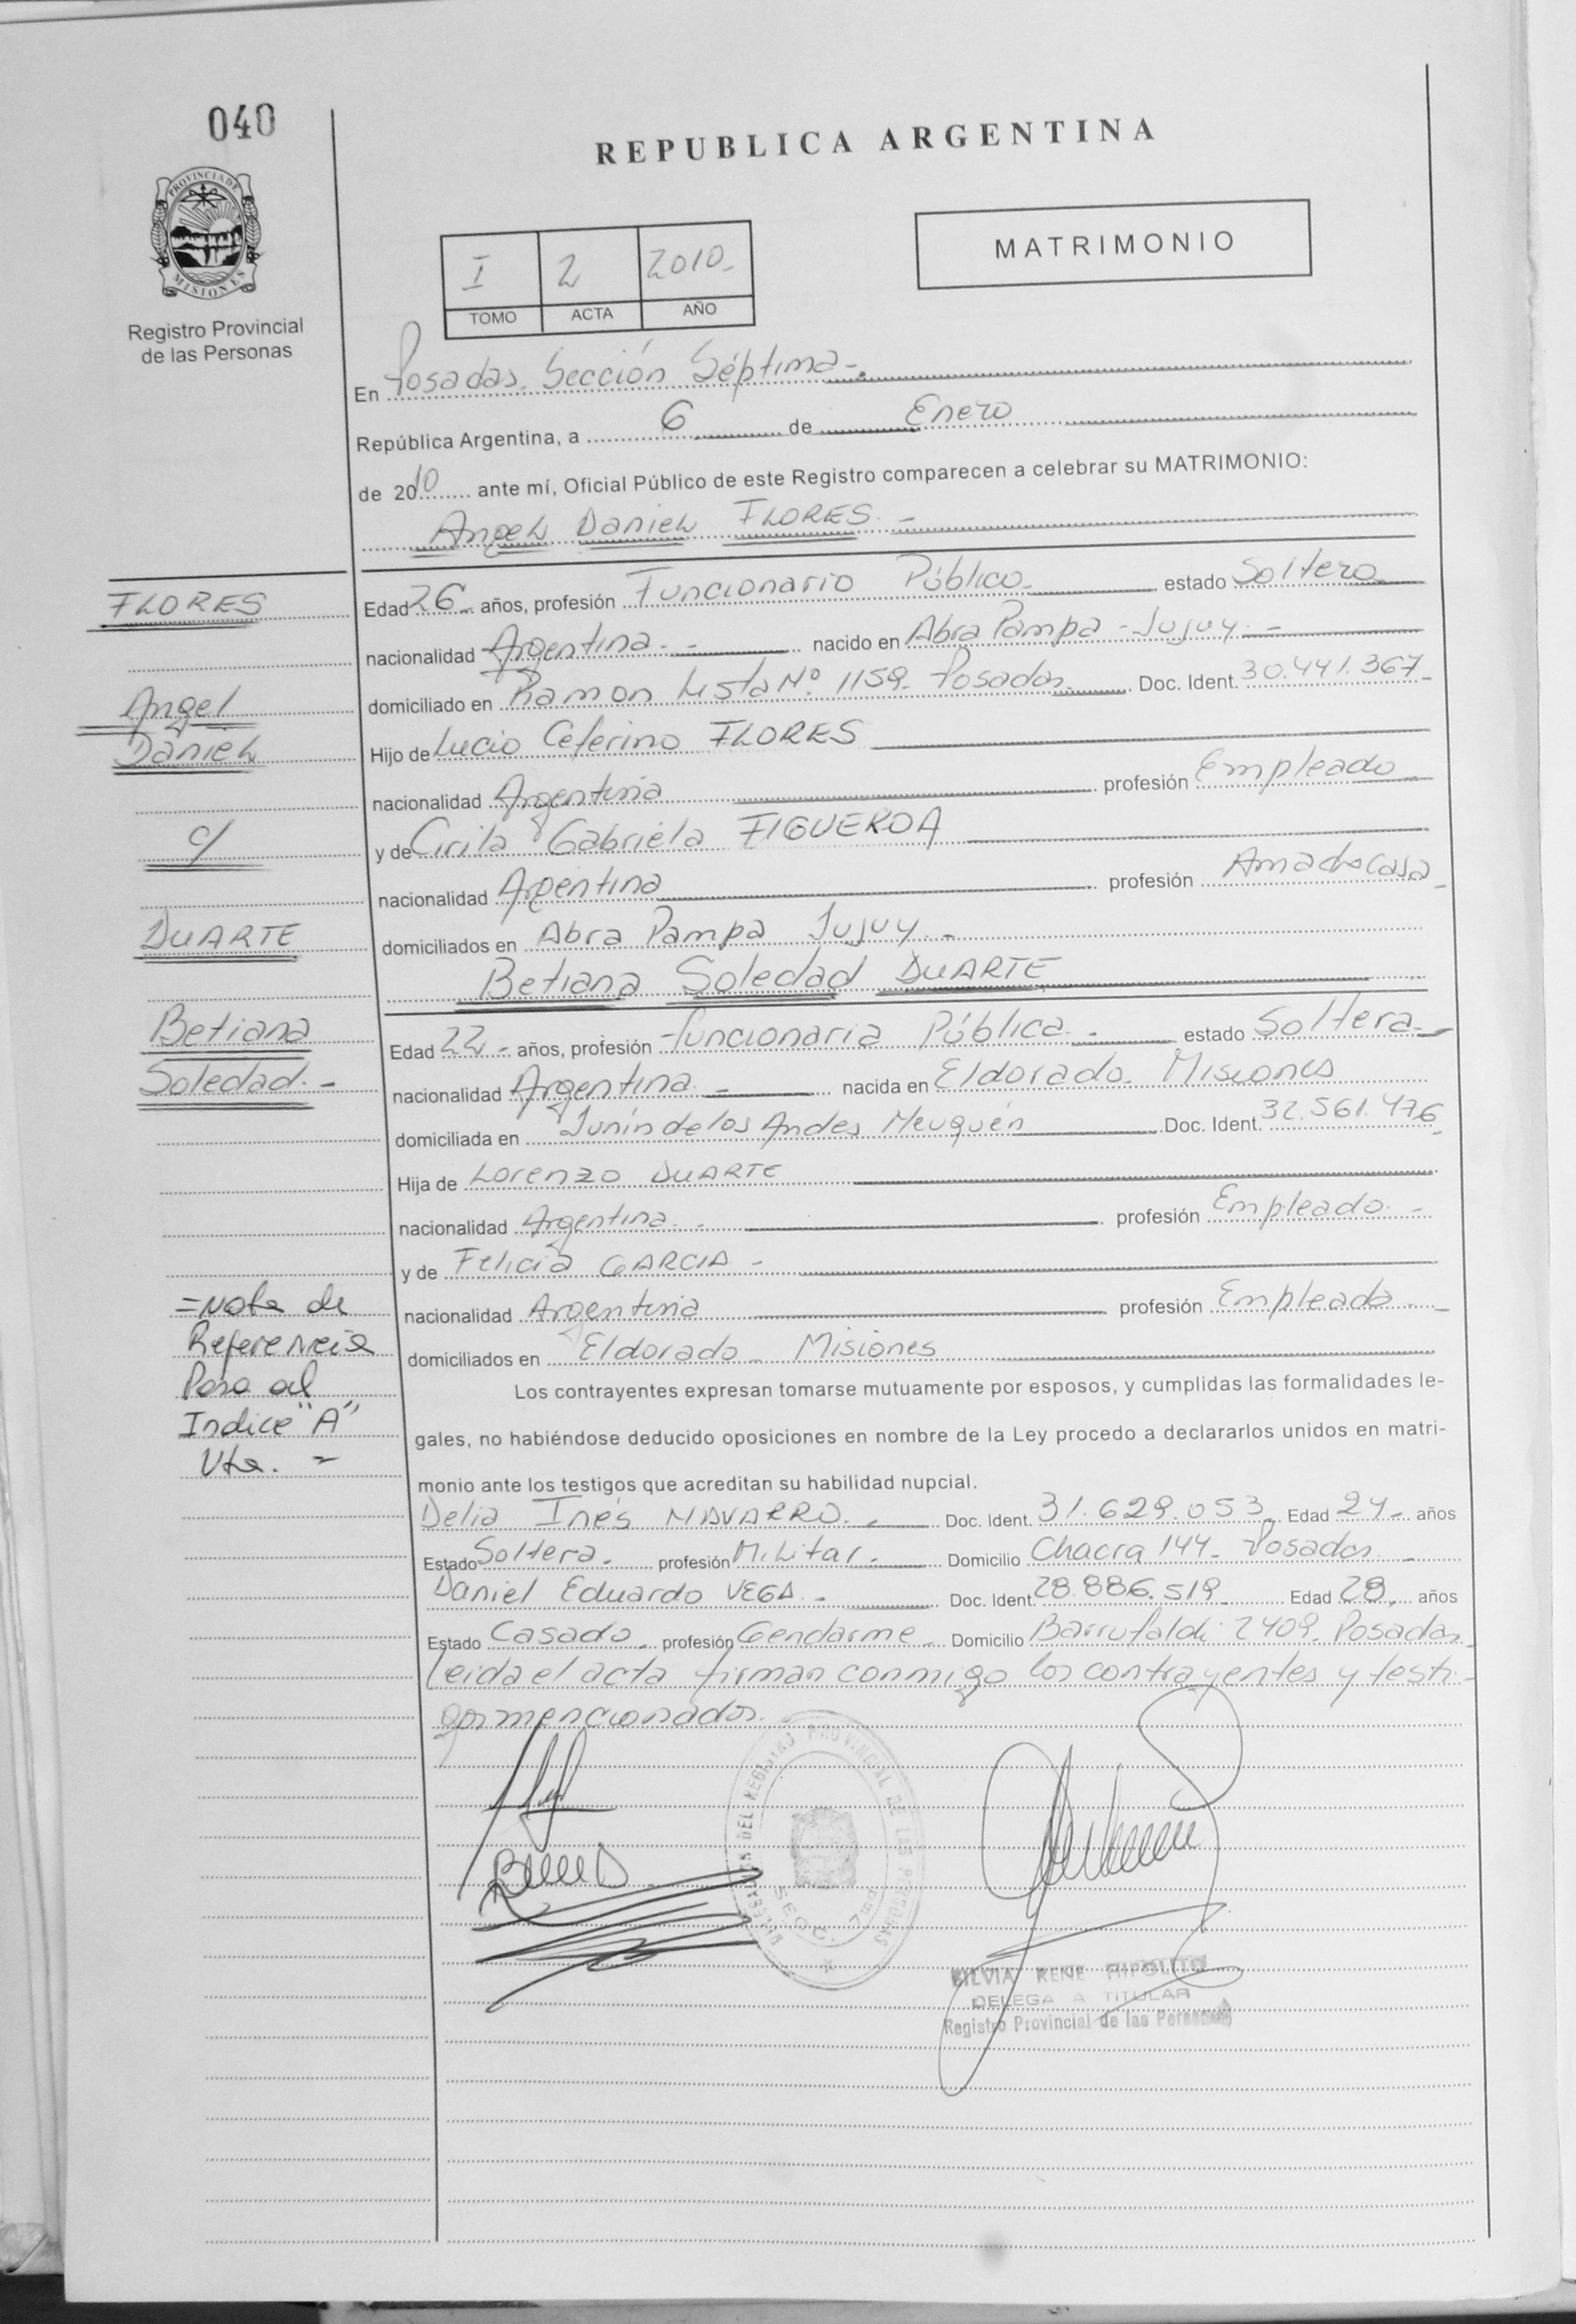 040
REPUBLICA ARGENTINA
PROVINCIA DE
MISIONES
Registro Provincial
de las Personas
MATRIMONIO
I 2 2010.-
TOMO ACTA AÑO
En Posadas. Sección Séptima-.
República Argentina, a 6 de Enero
de 2010 ante mí, Oficial Público de este Registro comparecen a celebrar su MATRIMONIO:
Angel Daniel FLORES. -
FLORES
Edad 26.- años, profesión Funcionario Público.- estado Soltero
nacionalidad Argentina. - nacido en Abra Pampa - Jujuy. -
Angel
domiciliado en Ramon Lista Nº 1159- Posadas. Doc. Ident. 30.441.367-
Daniel
Hijo de Lucio Ceferino FLORES
nacionalidad Argentina profesión Empleado
c/
y de Cirila Gabriela FIGUEROA
nacionalidad Argentina profesión Ama de casa-
DUARTE
domiciliados en Abra Pampa Jujuy. -
Betiana Soledad DUARTE
Betiana
Edad 22.- años, profesión Funcionaria Pública. - estado Soltera.-
Soledad. -
nacionalidad Argentina. - nacida en Eldorado. Misiones
domiciliada en Junín de los Andes Neuquén Doc. Ident. 32.561.476-
Hija de Lorenzo DUARTE
nacionalidad Argentina. - profesión Empleado. -
y de Felicia GARCIA -
=Nota de
nacionalidad Argentina profesión Empleada. -
Referencia
domiciliados en Eldorado - Misiones
Pasa al
Los contrayentes expresan tomarse mutuamente por esposos, y cumplidas las formalidades le-
Indice "A"
gales, no habiéndose deducido oposiciones en nombre de la Ley procedo a declararlos unidos en matri-
Vta. =
monio ante los testigos que acreditan su habilidad nupcial.
Delia Inés NAVARRO. - Doc. Ident. 31.629.053- Edad 24.- años
Estado Soltera. profesión Militar. - Domicilio Chacra 144- Posadas -
Daniel Eduardo VEGA. - Doc. Ident. 28.886.519 Edad 28. años
Estado Casado. profesión Gendarme. Domicilio Barrufaldi 2409- Posadas
Leida el acta firman conmigo los contrayentes y testi-
gos mencionados.
DEL REGISTRO PROVINCIAL DE LAS PERSONAS
SECC. 7ma
SILVIA RENE HIPOLITO
DELEGA A TITULAR
Registro Provincial de las Personas